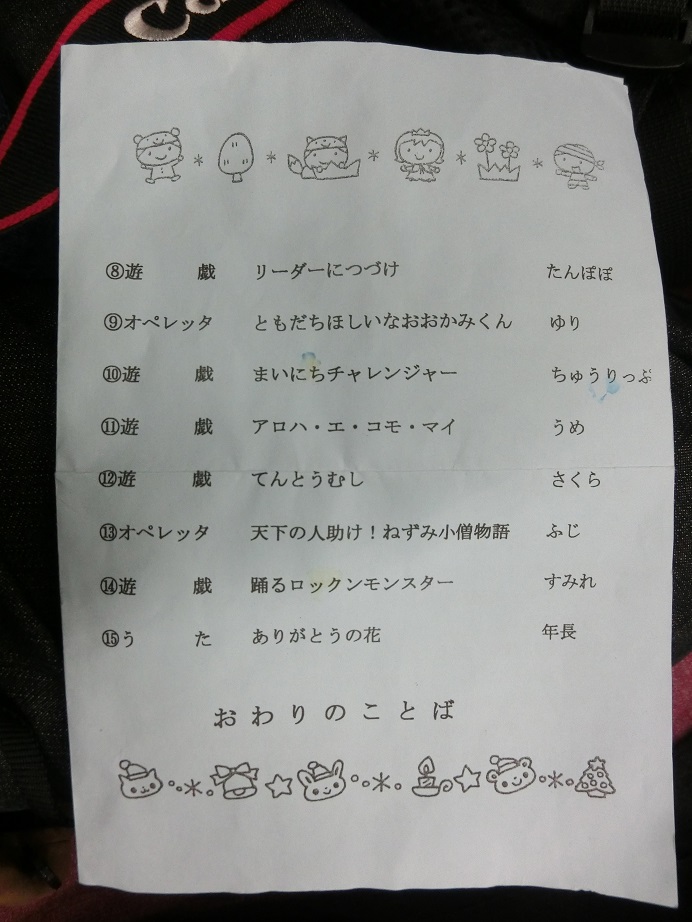 ⑧遊 戯 リーダーにつづけ たんぽぽ
⑨オペレッタ ともだちほしいなおおかみくん ゆり
⑩遊 戯 まいにちチャレンジャー ちゅうりっぷ
⑪遊 戯 アロハ・エ・コモ・マイ うめ
⑫遊 戯 てんとうむし さくら
⑬オペレッタ 天下の人助け！ねずみ小僧物語 ふじ
⑭遊 戯 踊るロックンモンスター すみれ
⑮う た ありがとうの花 年長
おわりのことば